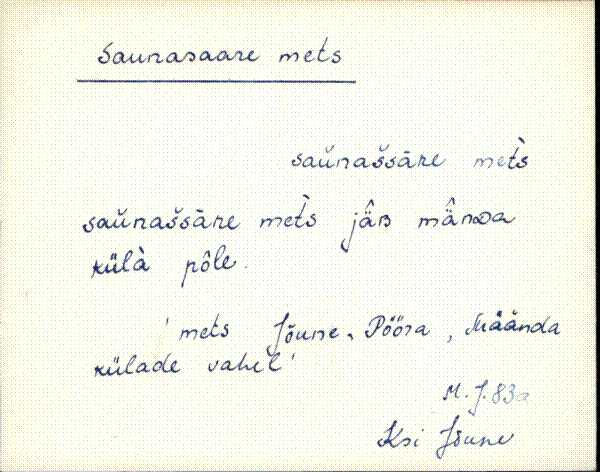 Saunasaare mets
saŭnašsāre met̀s
saŭnašsāre met̀s jâ̄ʙ mâ̄nᴅa
külà pôle.
'mets Jõune, Pööra, Mäända
külade vahel'
M. J. 83a
Ksi Jõune